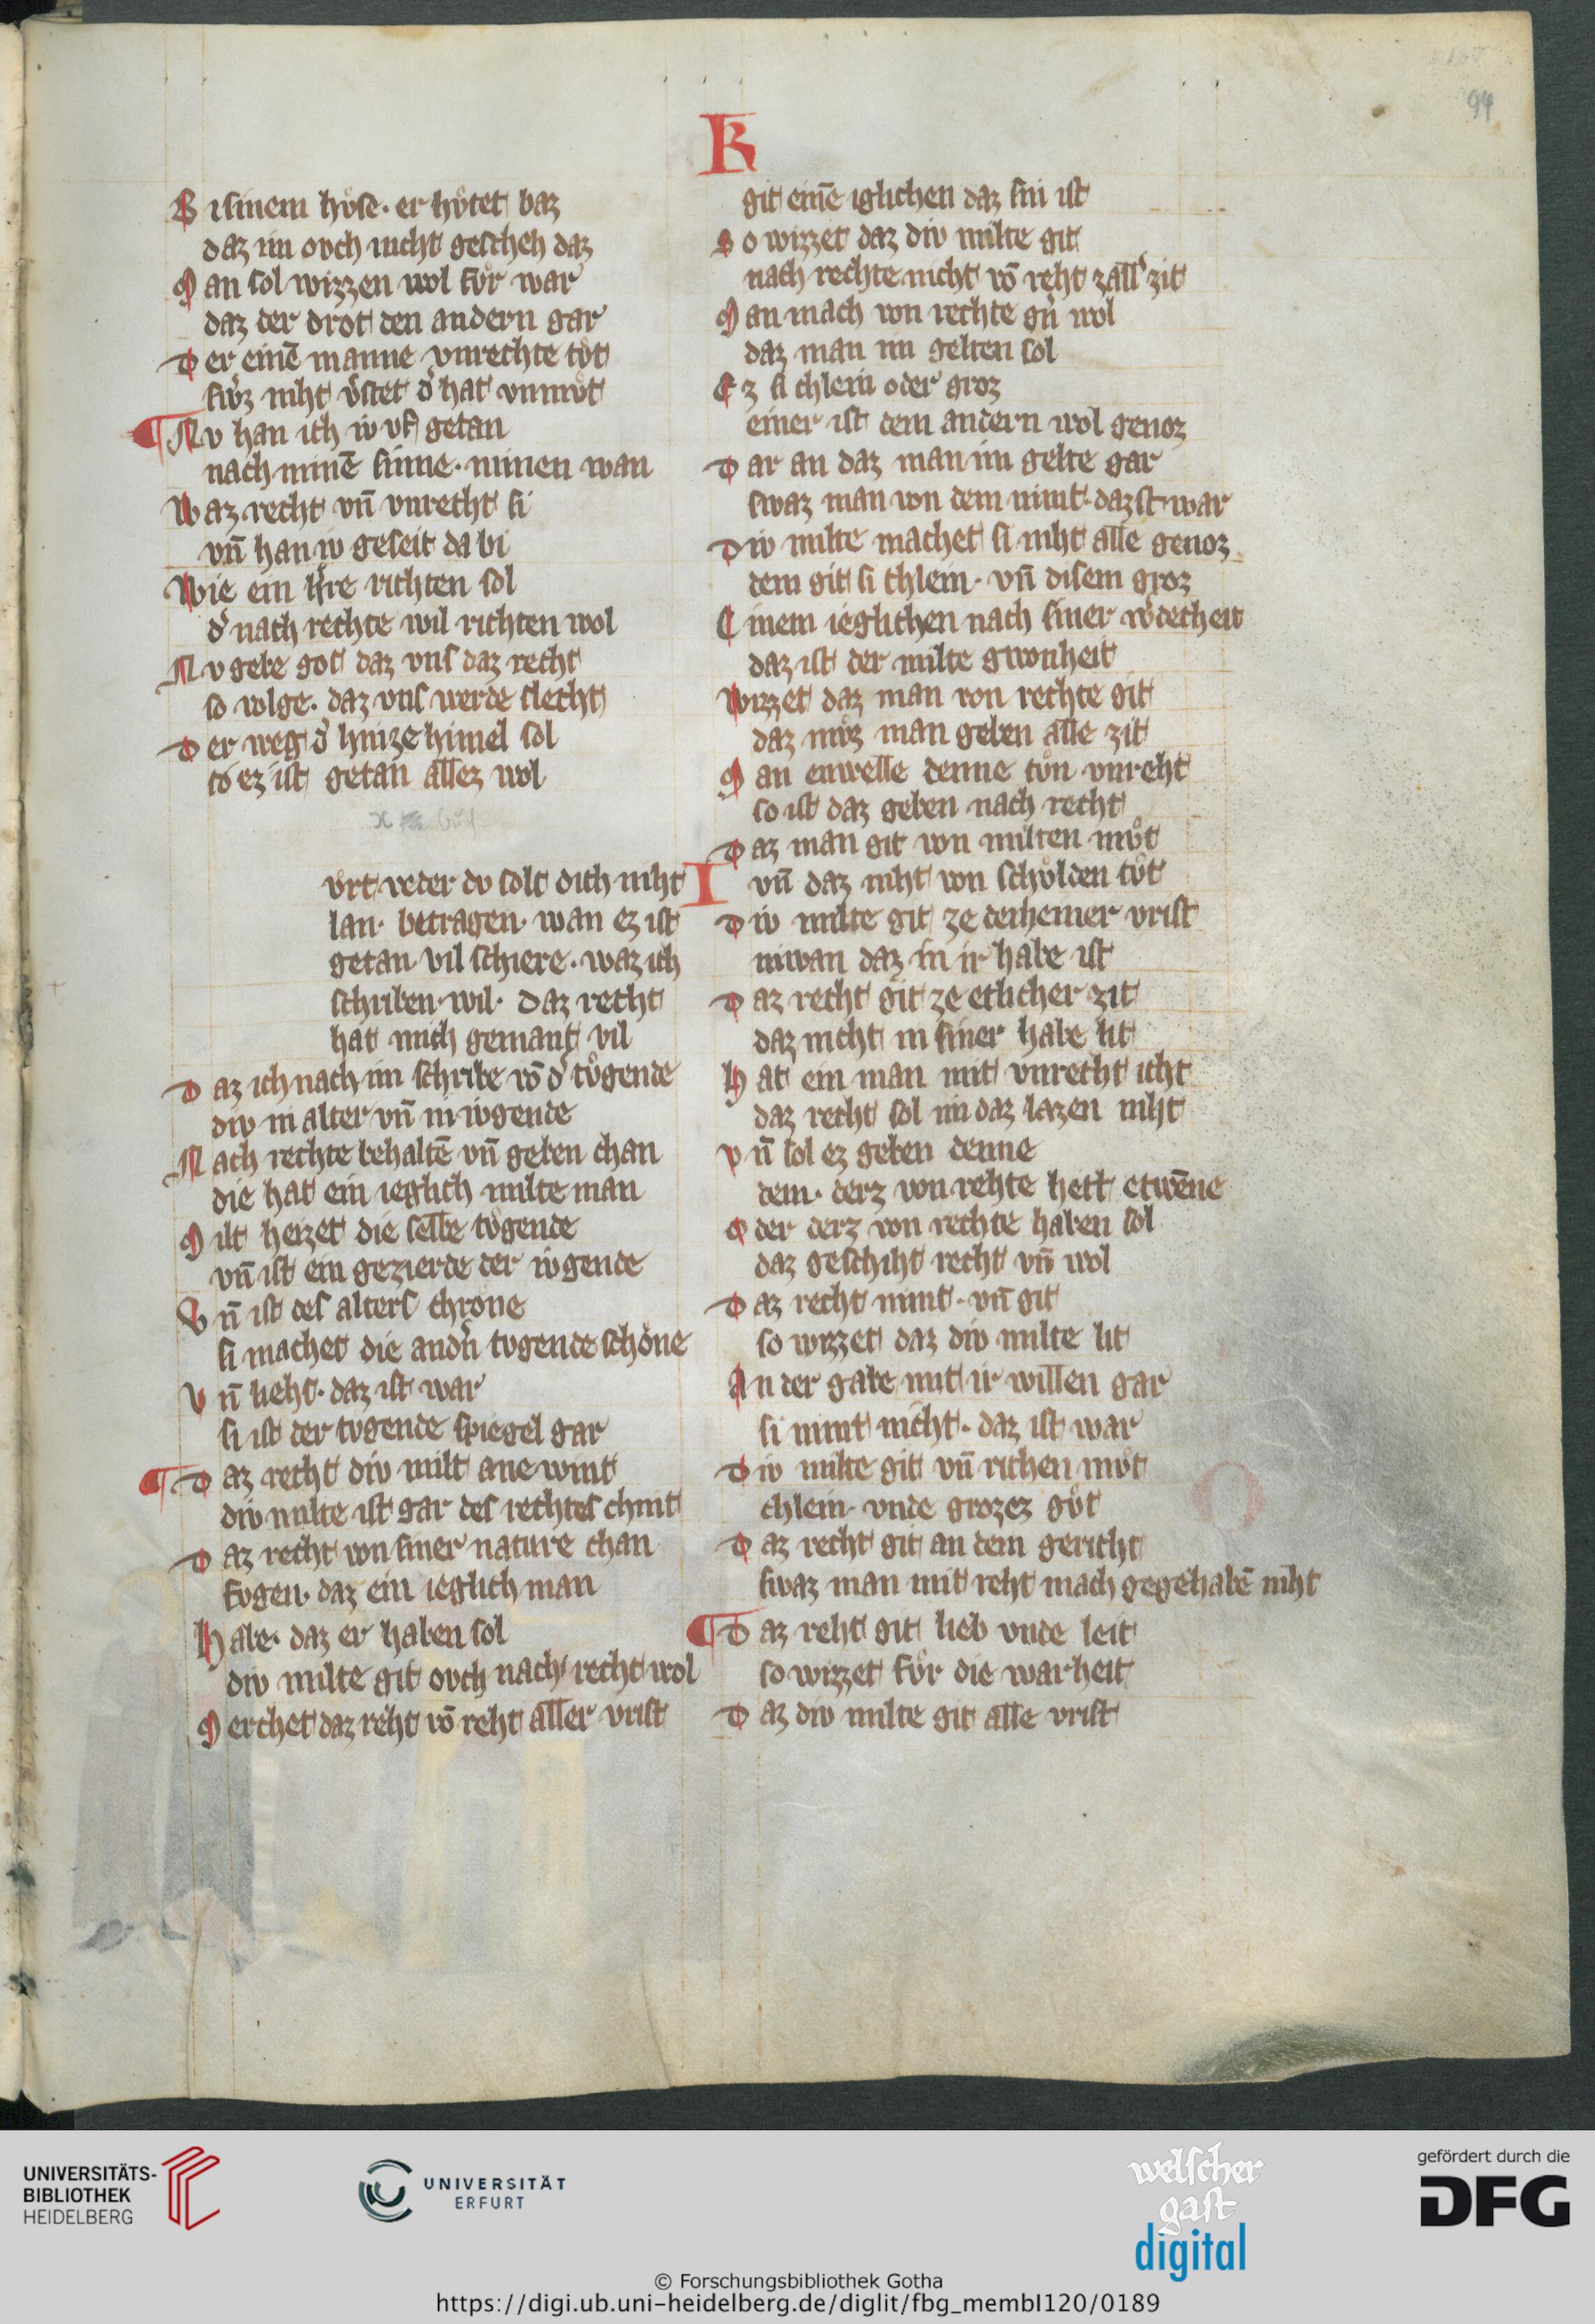 K
94
B isinem hvͦse · er hvͦtet baz
daz im ovch nicht gescheh daz
M an sol wizzen wol fvͦr war
daz der drot den andern gar
D er einē manne vnrechte tvͦt
swͦz niht v̾stet d̾ hat vnmvͦt
Nv han ich iv vf getan
nach minē sinne · minen wan
W az recht vn̄ vnrecht si
vn̄ han iv geseit da bi
Wie ein h̾re richten sol
d̾ nach rechte wil richten wol
Nv gebe got daz vns daz recht
so volge · daz vns werde slecht
D er weg d̾ hinze himel sol
so ez ist getan allez wol
vͦrt veder dv solt dich niht
lan · betragen · wan ez ist
getan vil schiere · waz ich
schriben wil · daz recht
hat mich gemant vil
D az ich nach im schribe vō d̾ tvͦgende
div in alter vn̄ in ivgende
N ach rechte behaltē vn̄ geben chan
die hat ein ieglich milte man
M ilt heizet die selbe tvͦgende
vn̄ ist ein gezierde der ivgende
V n̄ ist des alters chrone
si machet die andn̾ tvgende schöne
V n̄ lieht · daz ist war
si ist der tvgende spiegel gar
D az recht div milt ane wint
div milte ist gar des rechtes chint
D az recht von siner nature chan
fvgen · daz ein ieglich man
H abe · daz er haben sol
div milte git ovch nach recht wol
M erchet daz reht vō reht aller vrist
git einē iglichen daz sin ist
S o wizzet daz div milte git
nach rechte nicht vō reht zall̾ zit
M an mach von rechte gn̾ wol
daz man im gelten sol
E z si chlein oder groz
einer ist dem andern wol genoz
D ar an daz man im gelte gar
swaz man von dem nimt · daz ist war
D iv milte machet si niht alle genoz
dem git si chlein · vn̄ disem groz
E inem ieglichen nach siner w̾decheit
daz ist der milte gwonheit
Wizzet daz man von rechte git
daz mvͦz man geben alle zit
M an enwelle denne tvͦn vnreht
so ist daz geben nach recht
D az man git von milten mvͦt
I vn̄ daz niht von schvͦlden tvͦt
D iv milte git ze deheiner vrist
niwan daz in ir habe ist
D az recht git ze etlicher zit
daz nicht in siner habe lit
H at ein man mit vnrecht icht
daz recht sol im daz lazen niht
V n̄ sol ez geben denne
dem · derz von rehte hett etwēne
O der derz von rechte haben sol
daz geschiht recht vn̄ wol
D az recht nimt · vn̄ git
so wizzet daz div milte lit
An der gabe mit ir willen gar
si nimt nicht · daz ist war
D iv milte git vn̄ richen mvͦt
chlein · vnde grozez gvͦt
D az recht git an dem gericht
swaz man mit reht mach gegehabē niht
D az reht git lieb vnde leit
so wizzet fvͦr die warheit
D az div milte git alle vrist
UNIVERSITÄTS-
BIBLIOTHEK
HEIDELBERG
UNIVERSITÄT
ERFURT
welscher
gast
digital
gefördert durch die
DFG
© Forschungsbibliothek Gotha
https://digi.ub.uni-heidelberg.de/diglit/fbg_membI120/0189